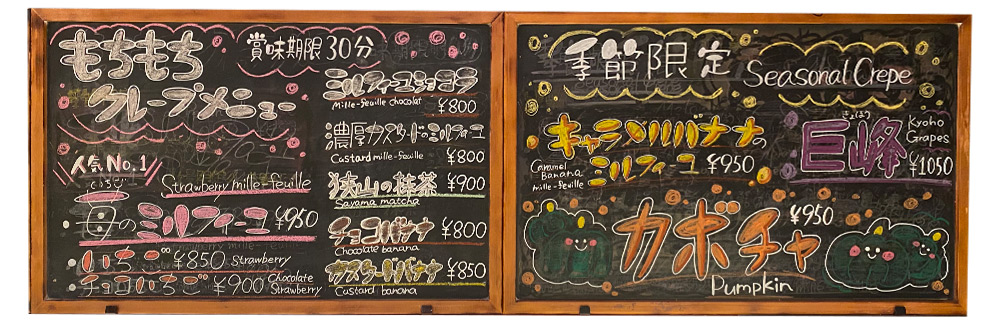 もちもち
クレープメニュー
賞味期限30分
人気No.1
いちご
Strawberry mille-feuille
苺のミルフィーユ ¥950
いちご ¥850 Strawberry
チョコいちご ¥900 Chocolate Strawberry
ミルフィーユショコラ
Mille-feuille chocolat ¥800
濃厚カスタードのミルフィーユ
Custard mille-feuille ¥800
狭山の抹茶 ¥900
Sayama matcha
チョコバナナ ¥800
Chocolate banana
カスタードバナナ ¥850
Custard banana
季節限定
Seasonal Crepe
キャラメルバナナの
ミルフィーユ ¥950
Caramel
Banana
mille-feuille
きょほう
巨峰
Kyoho
Grapes
¥1050
カボチャ ¥950
Pumpkin